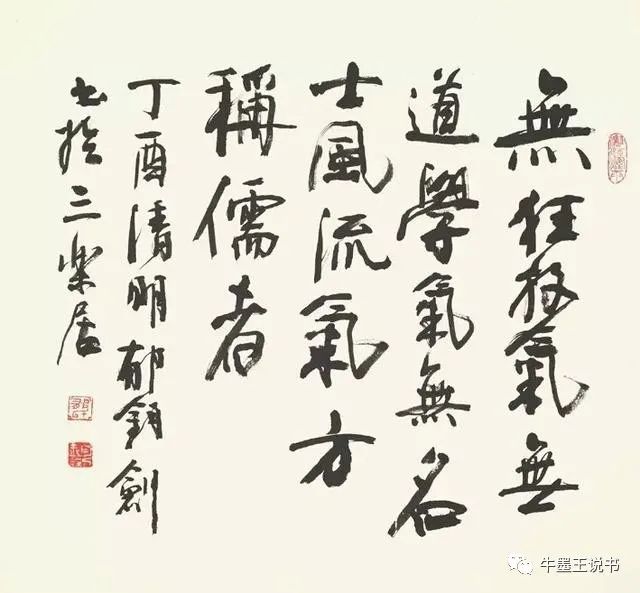 無狂放氣無
道學氣無名
士風流氣方
稱儒者
丁酉清明郁鈞劍
書於三樂居
牛墨王说书